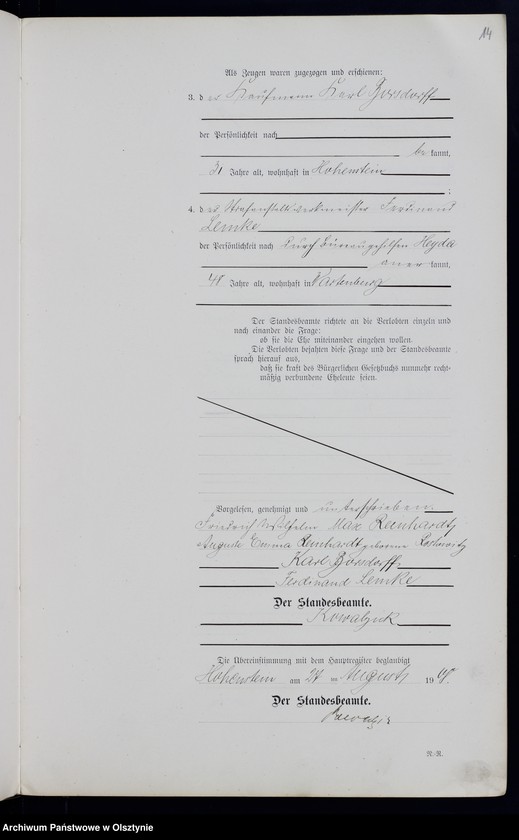 14
Als Zeugen waren zugezogen und erschienen:
3. der Kaufmann Karl Borsdorff
der Persönlichkeit nach
be kannt,
31 Jahre alt, wohnhaft in Hohenstein
;
4. der Strafanstaltswerkmeister Ferdinand
Lemke
der Persönlichkeit nach durch Bureaugehilfen Heyda
aner kannt,
48 Jahre alt, wohnhaft in Wartenburg
Der Standesbeamte richtete an die Verlobten einzeln und
nach einander die Frage:
ob sie die Ehe miteinander eingehen wollen.
Die Verlobten bejahten diese Frage und der Standesbeamte
sprach hierauf aus,
daß sie kraft des Bürgerlichen Gesetzbuchs nunmehr recht-
mäßig verbundene Eheleute seien.
Vorgelesen, genehmigt und unterschrieben.
Friedrich Wilhelm Max Reinhardt
Auguste Emma Reinhardt geborene
Karl Borsdorff
Ferdinand Lemke
Der Standesbeamte.
Kowalzik
Die Übereinstimmung mit dem Hauptregister beglaubigt
Hohenstein am im August 19
Der Standesbeamte.
Kowalzik
N-R.
Archiwum Państwowe w Olsztynie